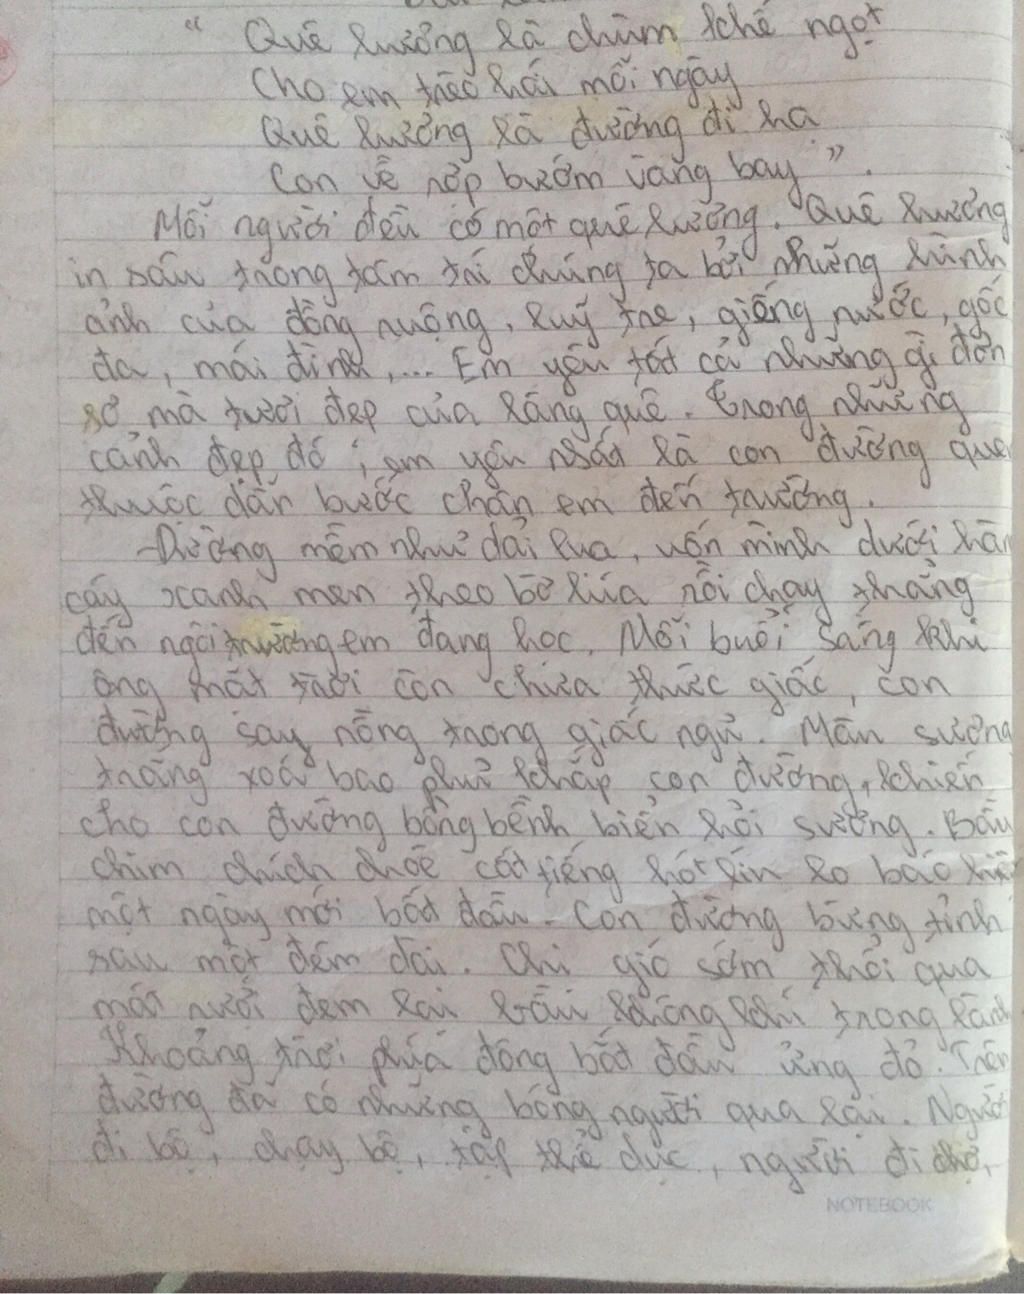 “ Quê hương là chùm khế ngọt
Cho em trèo hái mỗi ngày
Quê hương là đường đi ha
Con về rợp bướm vàng bay ”.
Mỗi người đều có một quê hương. Quê hương
in sâu trong tâm trí chúng ta bởi những hình
ảnh của đồng ruộng, luỹ tre, giếng nước, gốc
đa, mái đình,... Em yêu tất cả những gì đơn
sơ mà tươi đẹp của làng quê. Trong những
cảnh đẹp đó, em yêu nhất là con đường que
thuộc dẫn bước chân em đến trường.
Đường mềm như dải lụa, uốn mình dưới hàn
cây xanh men theo bờ lúa rồi chạy thẳng
đến ngôi trường em đang học. Mỗi buổi sáng khi
ông mặt trời còn chưa thức giấc, con
đường say nồng trong giấc ngủ. Màn sương
trắng xoá bao phủ khắp con đường, khiến
cho con đường bồng bềnh biển hơi sương. Bầy
chim chích choè cất tiếng hót lín lo báo hiệ
một ngày mới bắt đầu. Con đường bừng tỉnh
sau một đêm dài. Chị gió sớm thổi qua
mát rượi đem lại bầu không khí trong lành
Khoảng trời phía đông bắt đầu ửng đỏ. Trên
đường đã có những bóng người qua lại. Người
đi bộ, chạy bộ, tập thể dục, người đi chợ,
NOTEBOOK